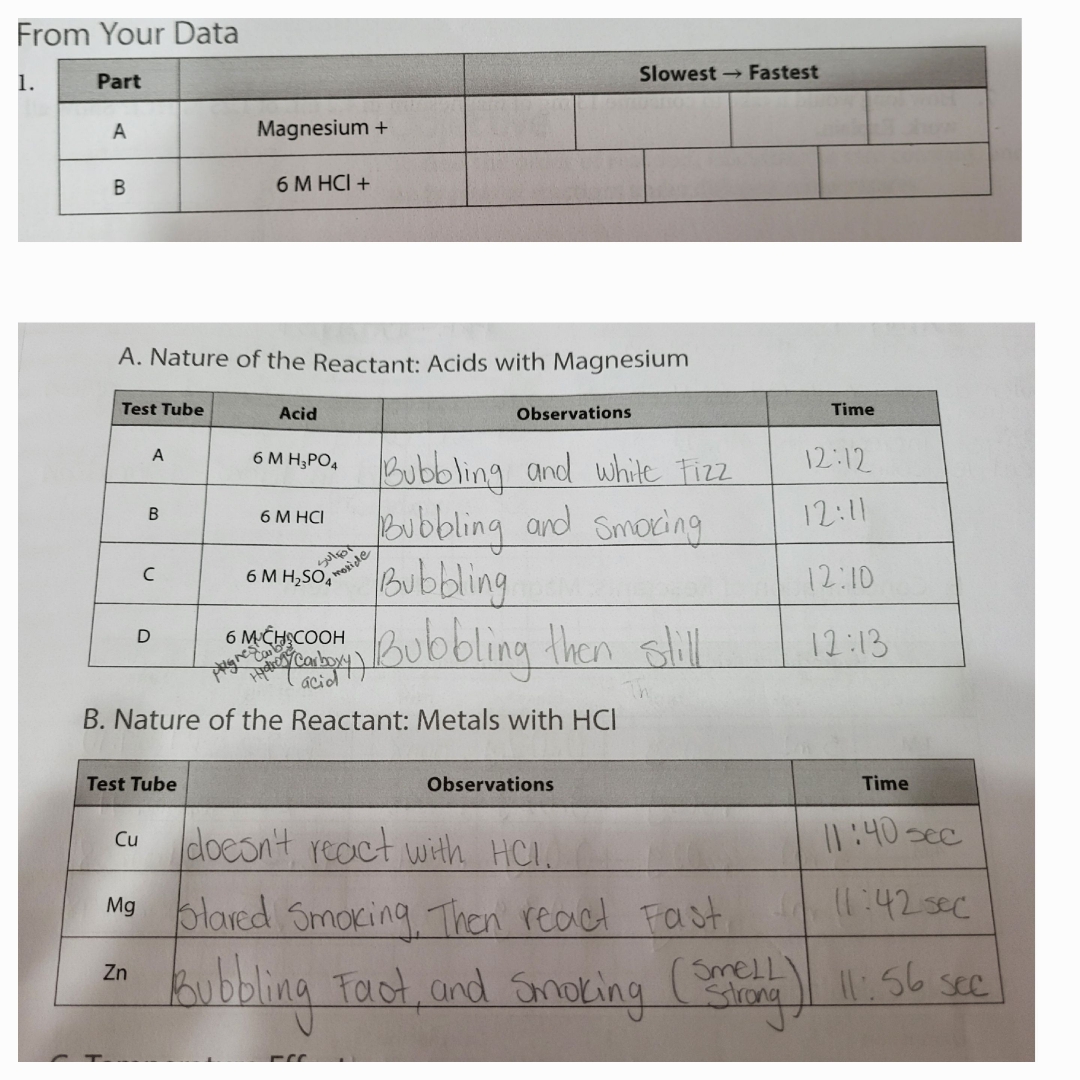 From Your Data
1.
Part Slowest → Fastest
A Magnesium +
B 6 M HCl +
A. Nature of the Reactant: Acids with Magnesium
Test Tube Acid Observations Time
A 6 M H₃PO₄ Bubbling and white Fizz 12:12
B 6 M HCl Bubbling and smoking 12:11
C 6 M H₂SO₄ Bubbling 12:10
D 6 M CH₃COOH Bubbling then still 12:13
(carboxy)
acid
B. Nature of the Reactant: Metals with HCl
Test Tube Observations Time
Cu doesn't react with HCl. 11:40 sec
Mg Stared smoking, Then react Fast 11:42 sec
Zn Bubbling Fast, and smoking (smell strong) 11:56 sec